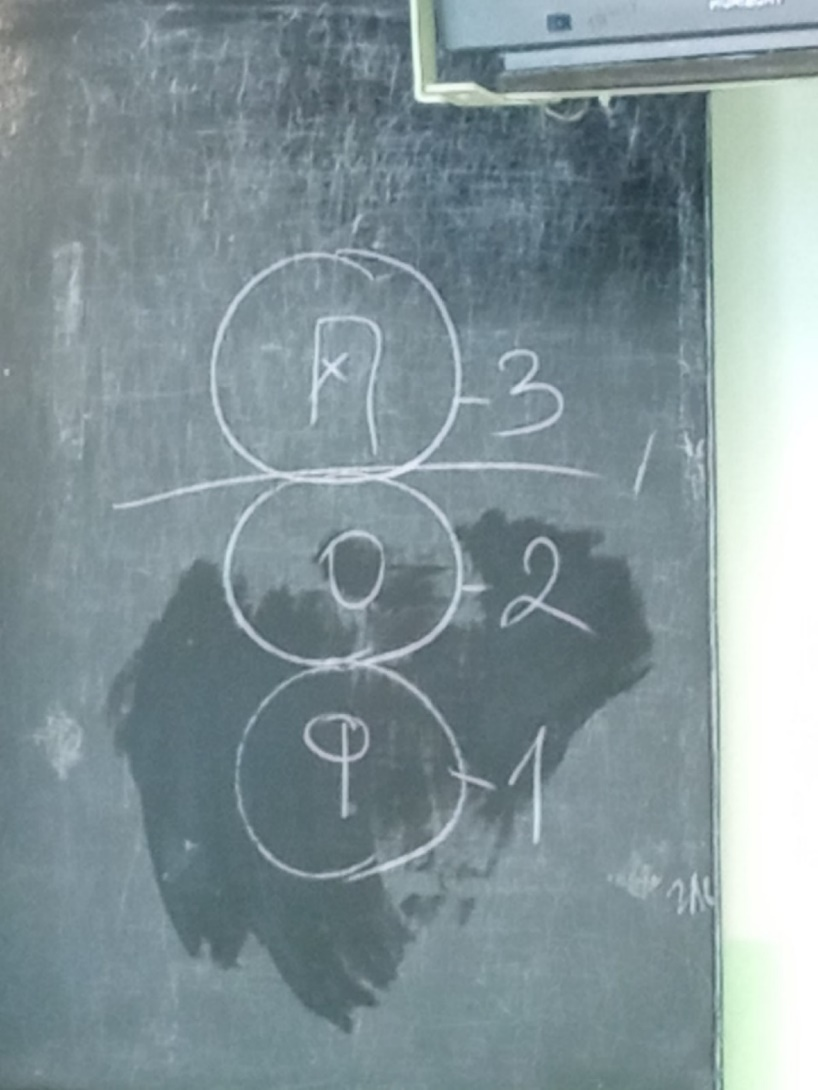 П - 3
О - 2
Ф - 1